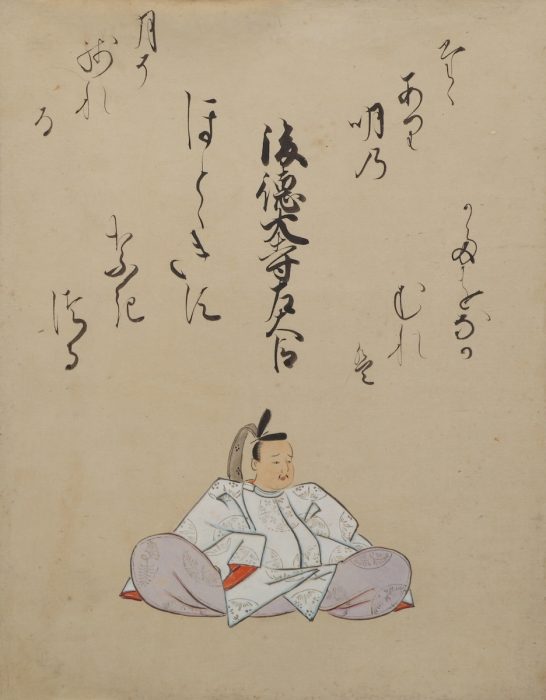 後徳大寺左大臣
ほとゝきす
なき
つる
かたをなか
むれ
は
たゝ
あり
明乃
月そ
残れ
る